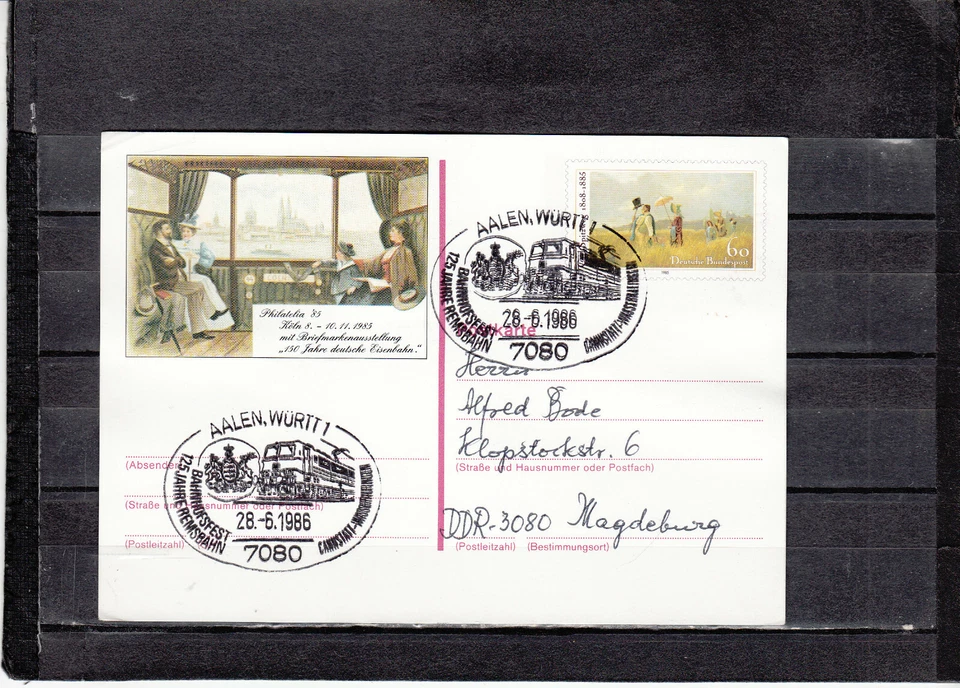 Philatelia '85
Köln 8. - 10.11.1985
mit Briefmarkenausstellung
„150 Jahre deutsche Eisenbahn."
1808-1885
60
Deutsche Bundespost
AALEN, WÜRTT 1
BAHNHOFSFEST
125 JAHRE REMSBAHN
28.-6.1986
7080
Postkarte
Herrn
Alfred Bode
Klopstockstr. 6
(Straße und Hausnummer oder Postfach)
DDR-3080 Magdeburg
(Postleitzahl) (Bestimmungsort)
AALEN, WÜRTT 1
BAHNHOFSFEST
125 JAHRE REMSBAHN
28.-6.1986
7080
(Absender)
(Straße und Hausnummer oder Postfach)
(Postleitzahl)